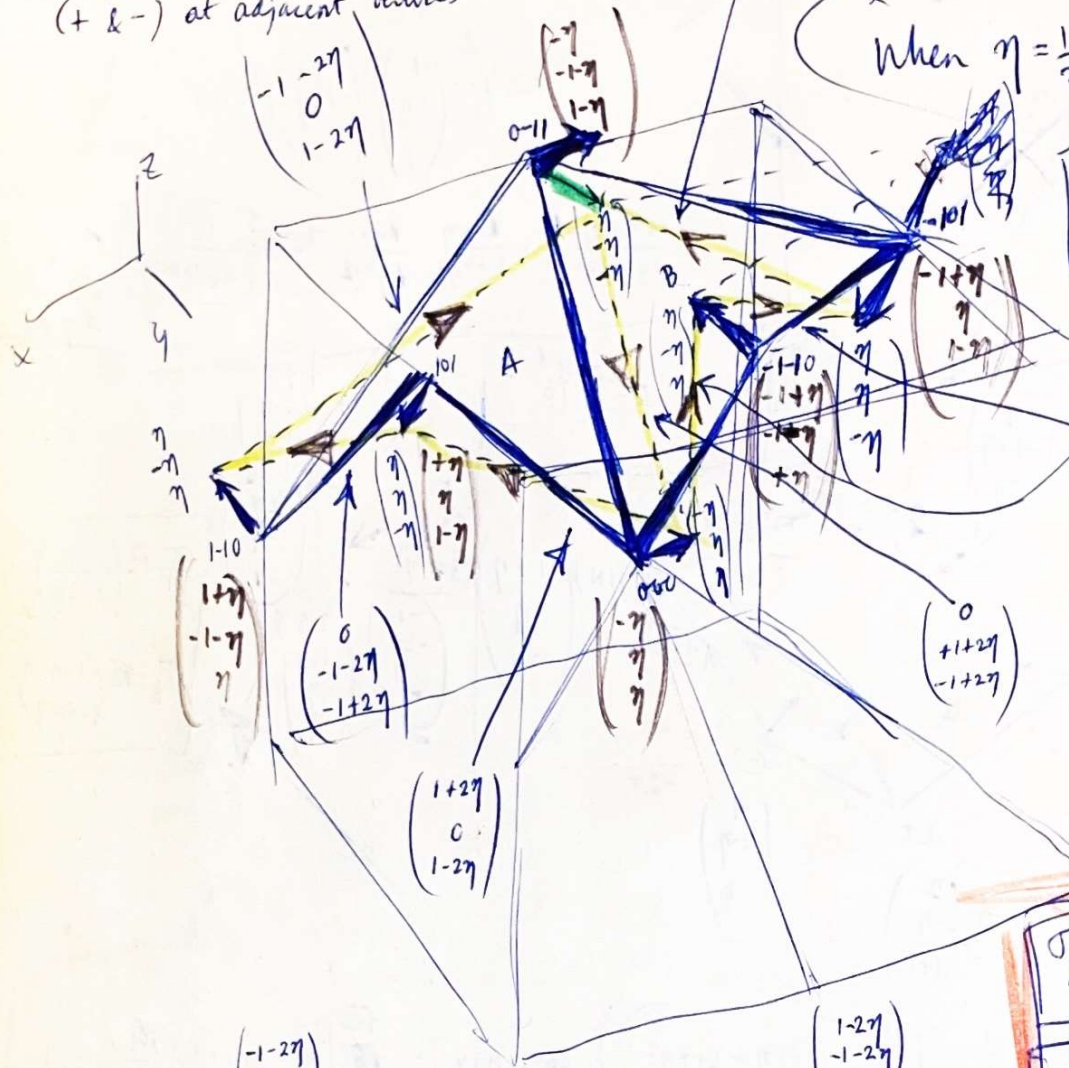 (+ & -) at adjacent
When η = 1
-1-2η
0
1-2η
-η
-1-η
1-η
0-11
Z
x
y
-101
-1+η
η
1-η
η
-η
η
B
A
101
η
-η
η
-1-10
-1+η
-1-η
+η
η
η
-η
η
-η
η
η
η
-η
1+η
η
1-η
-η
η
η
1-10
1+η
-1-η
η
000
-η
η
η
0
-1-2η
-1+2η
0
+1+2η
-1+2η
1+2η
0
1-2η
-1-2η
1-2η
-1-2η